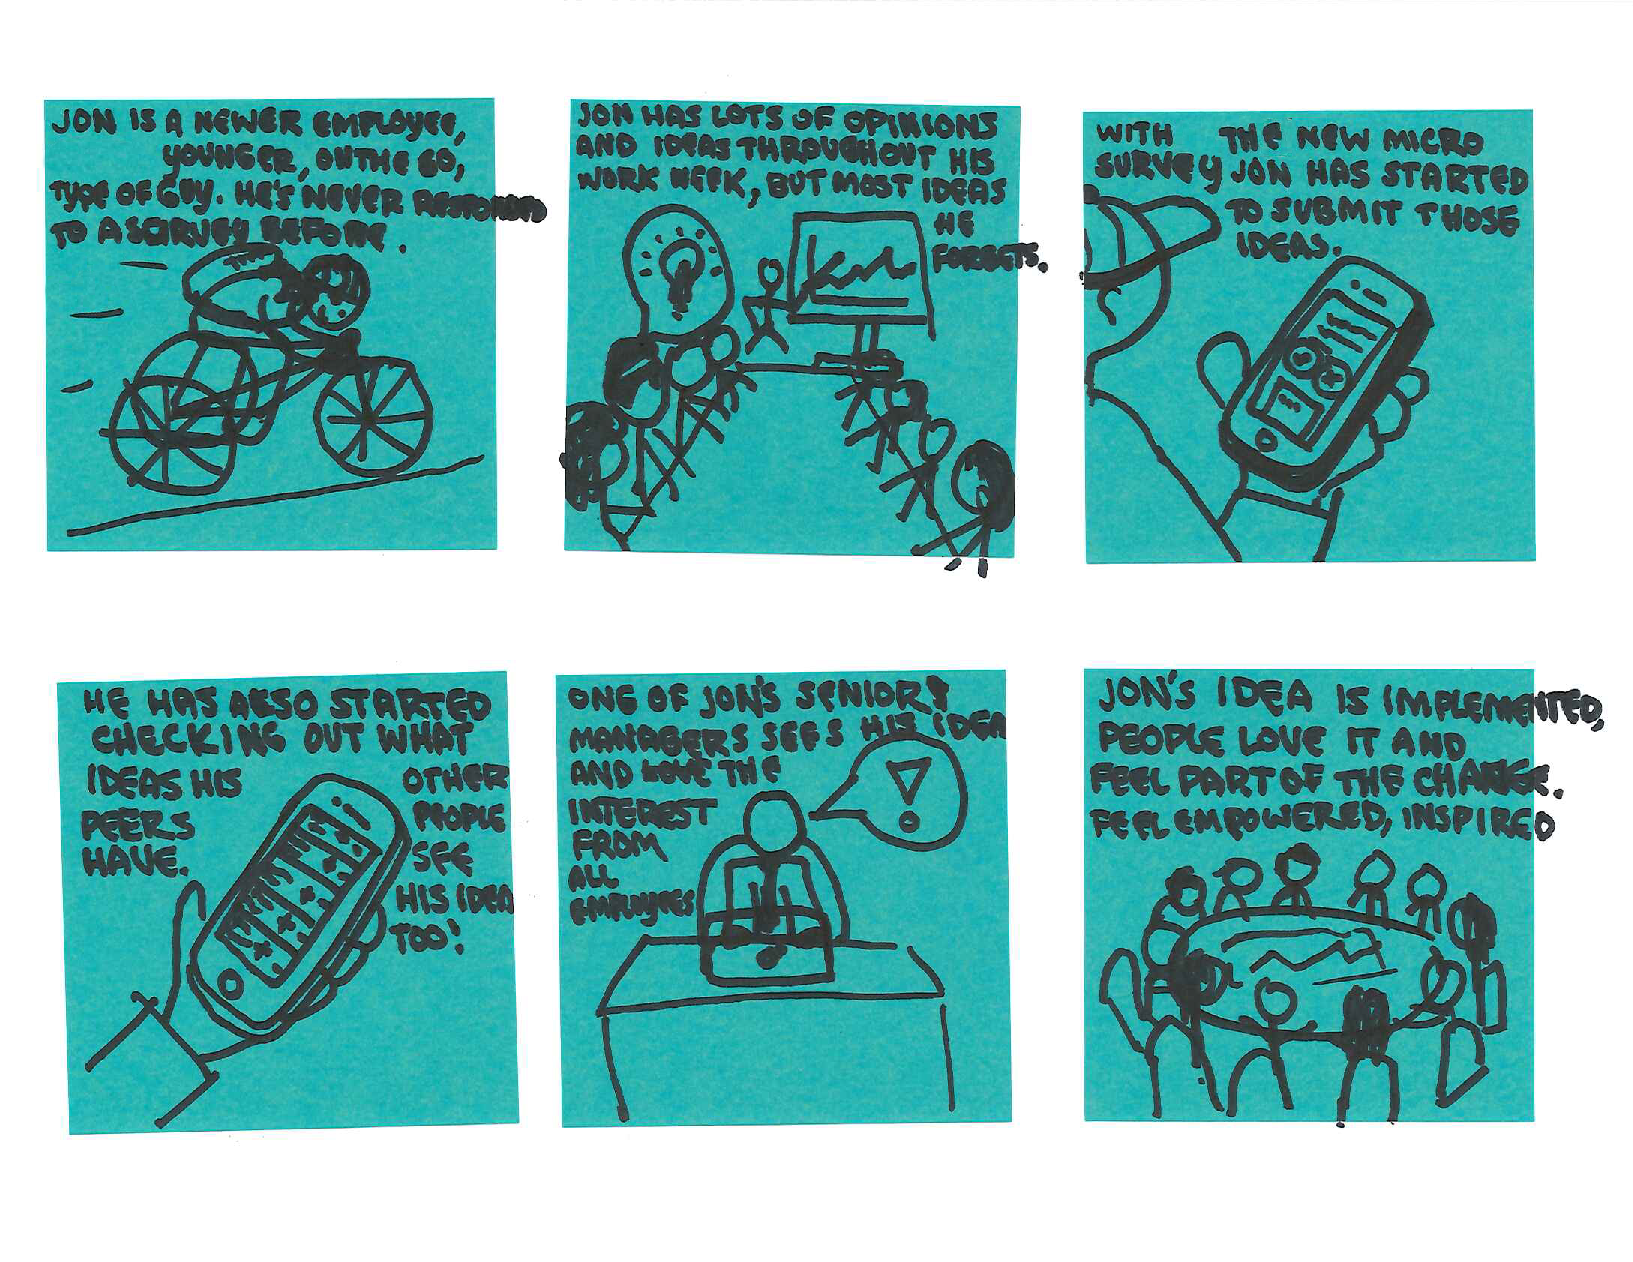 JON IS A NEWER EMPLOYEE,
YOUNGER, ON THE GO,
TYPE OF GUY. HE'S NEVER RESPONDED
TO A SURVEY BEFORE.
JON HAS LOTS OF OPINIONS
AND IDEAS THROUGHOUT HIS
WORK WEEK, BUT MOST IDEAS
HE
FORGETS.
WITH THE NEW MICRO
SURVEY JON HAS STARTED
TO SUBMIT THOSE
IDEAS.
HE HAS ALSO STARTED
CHECKING OUT WHAT
IDEAS HIS
PEERS
HAVE.
OTHER
PEOPLE
SEE
HIS IDEA
TOO!
ONE OF JON'S SENIOR
MANAGERS SEES HIS IDEA
AND LOVE THE
INTEREST
FROM
ALL
EMPLOYEES
JON'S IDEA IS IMPLEMENTED,
PEOPLE LOVE IT AND
FEEL PART OF THE CHANGE.
FEEL EMPOWERED, INSPIRED